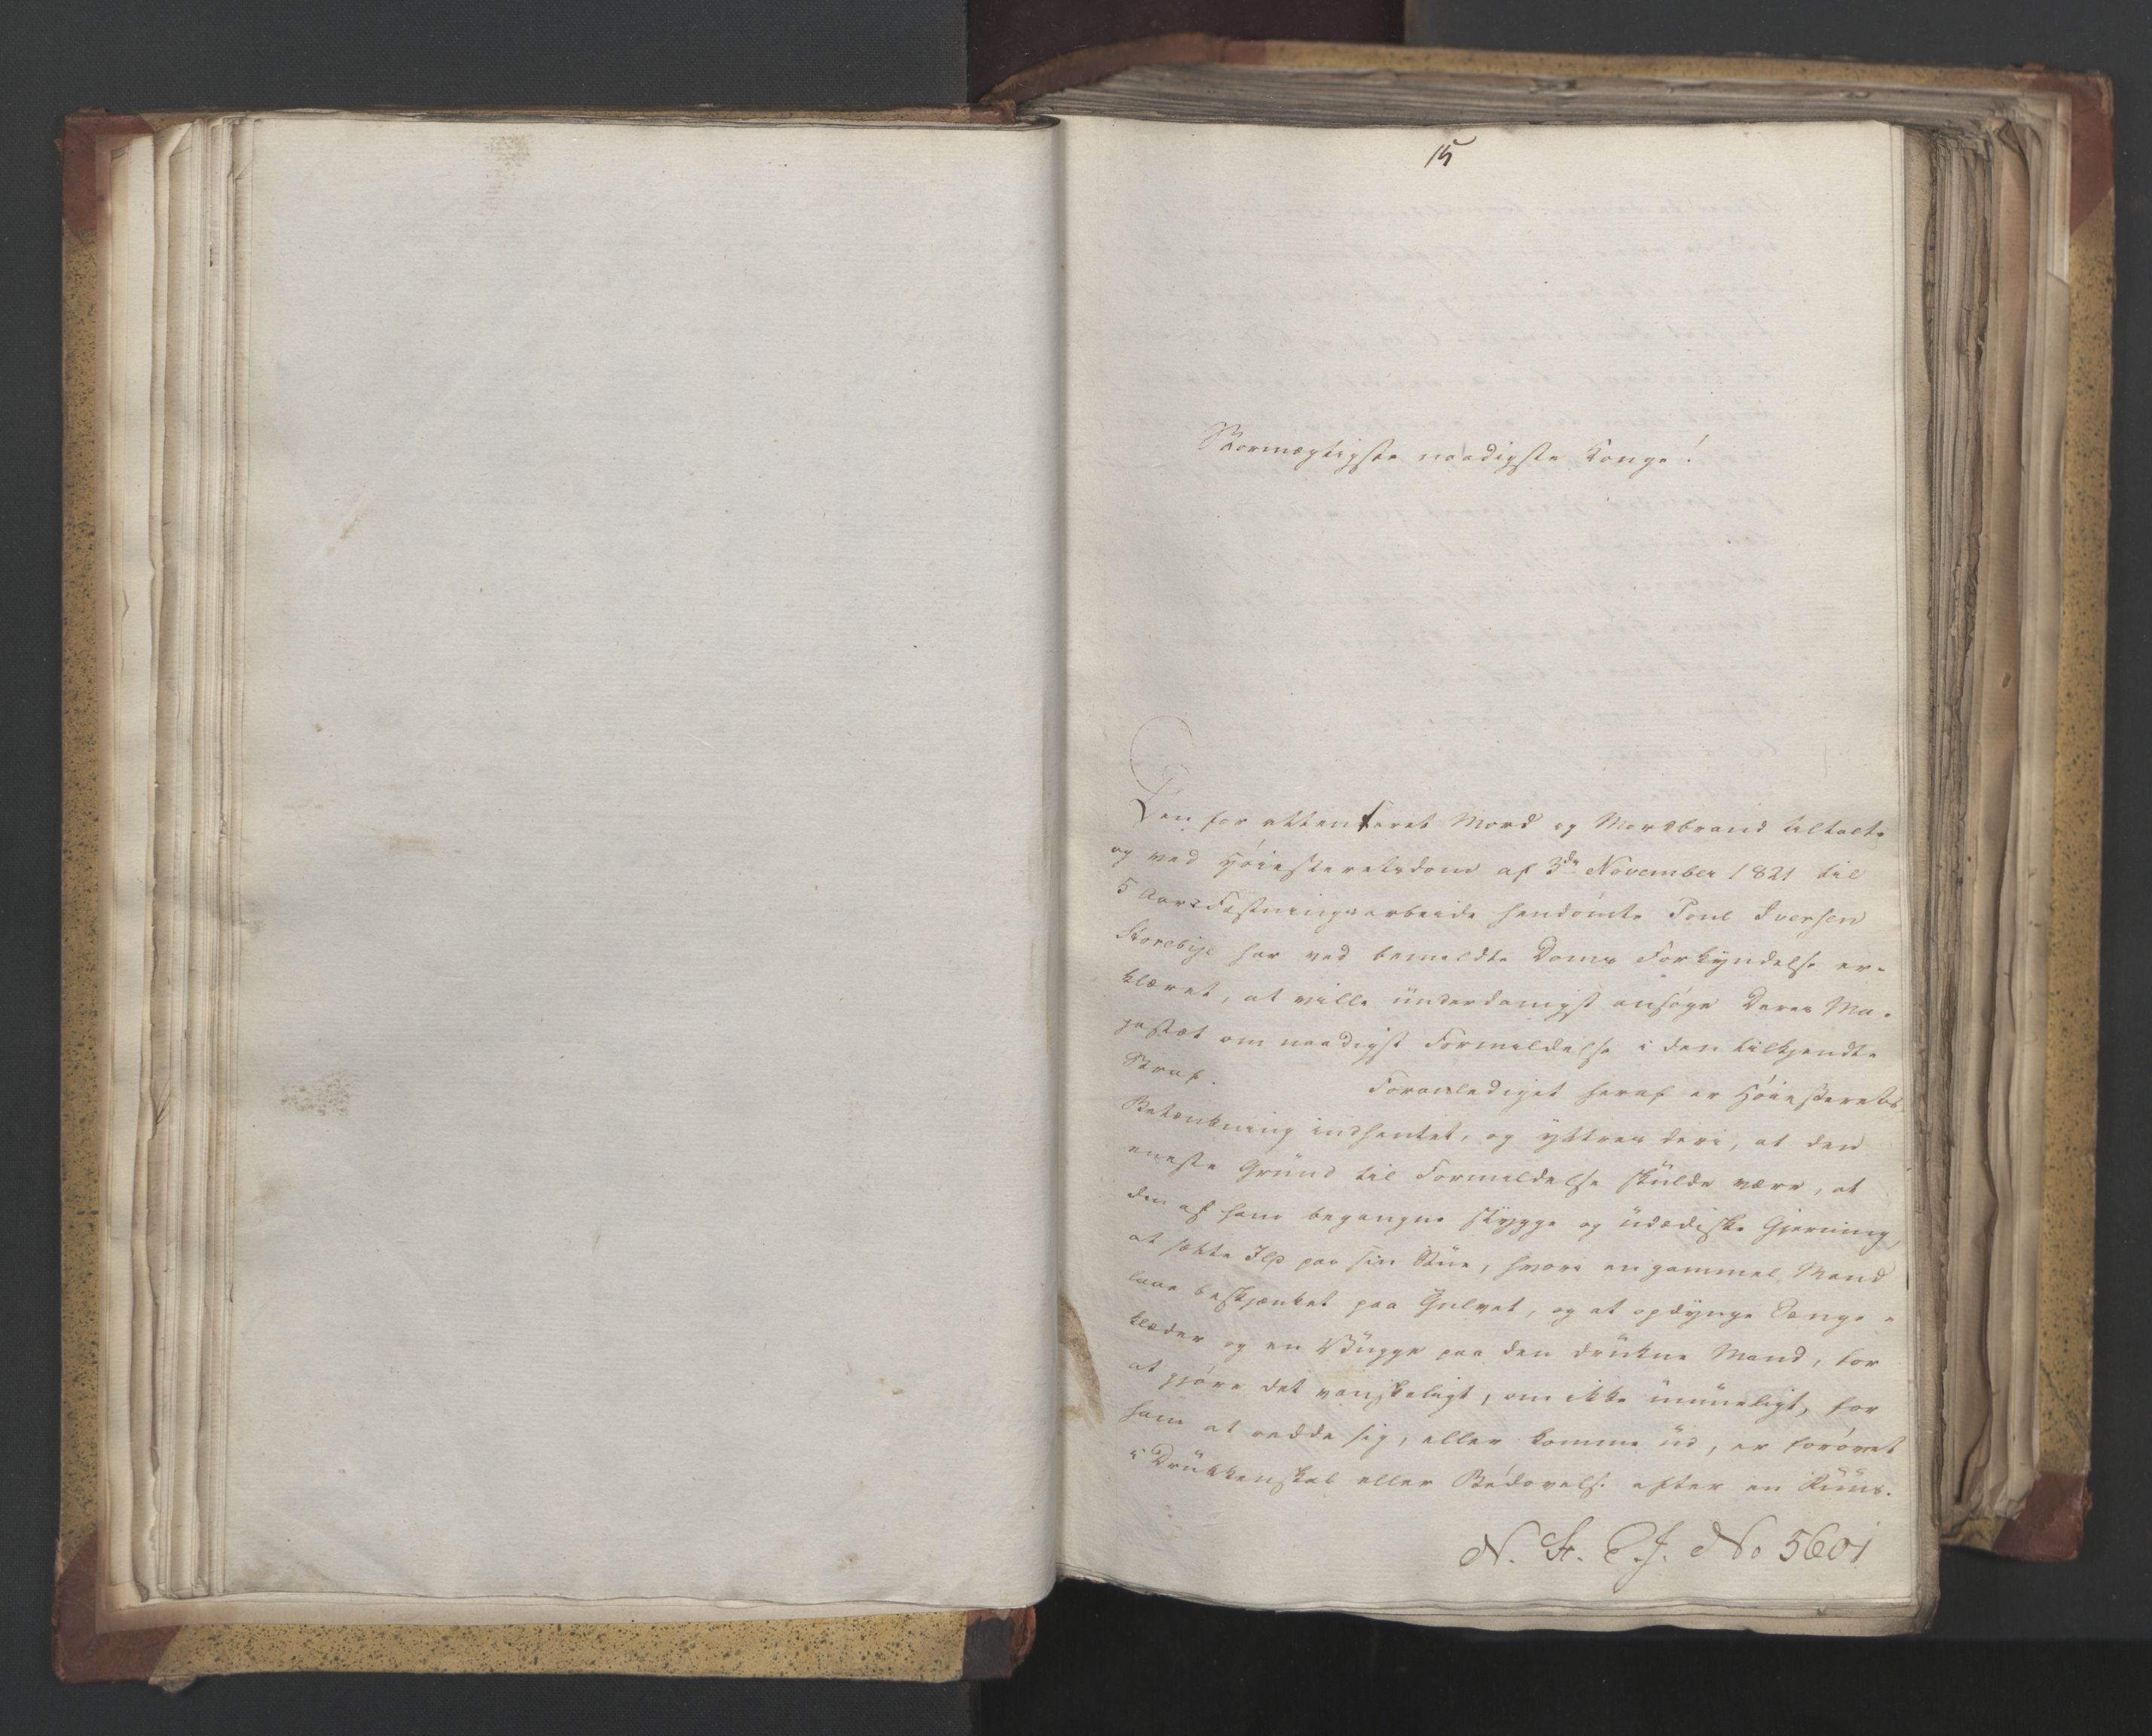 15
Stormægtigste naadigste Konge!
Den for attenteret Mord og Mordbrand tiltalte
og ved Høiesteretsdom af 3de November 1821 til
5 Aars Fæstningsarbeide hendømte Poul Iversen
Storebye har ved bemeldte Doms Forkyndelse er-
klæret, at ville underdanigst ansøge Deres Ma-
jestæt om naadigst Formildelse i den tilkjendte
Straf.
Foranlediget heraf er Høiesterets
Betænkning indhentet, og yttres deri, at den
eneste Grund til Formildelse skulde være, at
den af ham begangne stygge og udædiske Gjerning,
at sætte Ild paa sin Stue, hvori en gammel Mand
laae beskjænket paa Gulvet, og at opdynge Senge-
klæder og en Vugge paa den drukne Mand, for
at gjøre det vanskeligt, om ikke umueligt, for
ham at redde sig, eller komme ud, er forøvet
i Drukkenskab eller Bedøvelse efter en Ruus.
N. St. C. J. No 5601